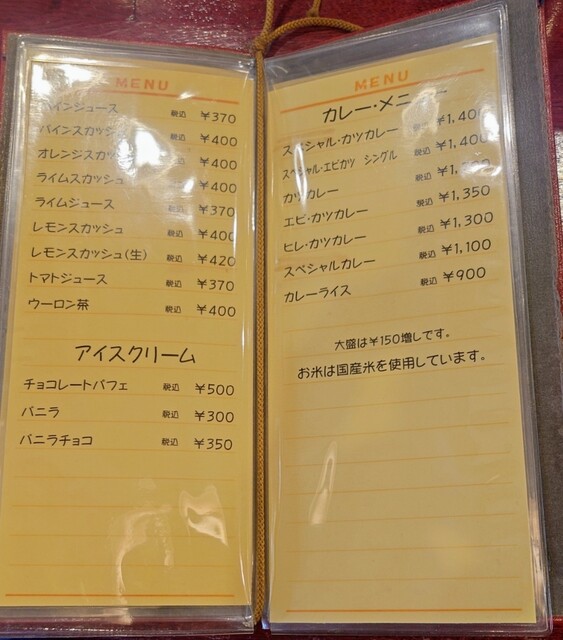 MENU
パインジュース 税込 ¥370
パインスカッシュ 税込 ¥400
オレンジスカッシュ 税込 ¥400
ライムスカッシュ 税込 ¥400
ライムジュース 税込 ¥370
レモンスカッシュ 税込 ¥400
レモンスカッシュ(生) 税込 ¥420
トマトジュース 税込 ¥370
ウーロン茶 税込 ¥400
アイスクリーム
チョコレートパフェ 税込 ¥500
バニラ 税込 ¥300
バニラチョコ 税込 ¥350
MENU
カレー・メニュー
スペシャル・カツカレー 税込 ¥1,400
スペシャル・エビカツ シングル 税込 ¥1,400
カツカレー 税込
エビ・カツカレー 税込 ¥1,350
ヒレ・カツカレー 税込 ¥1,300
スペシャルカレー 税込 ¥1,100
カレーライス 税込 ¥900
大盛は¥150増しです。
お米は国産米を使用しています。